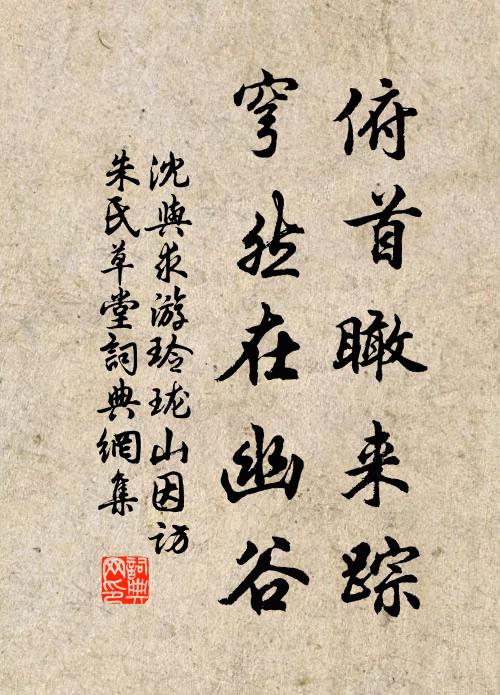 俯首瞰来踪
穹然在幽谷
沈與求游玲珑山因访
朱氏草堂詞典網集
詞典
网印